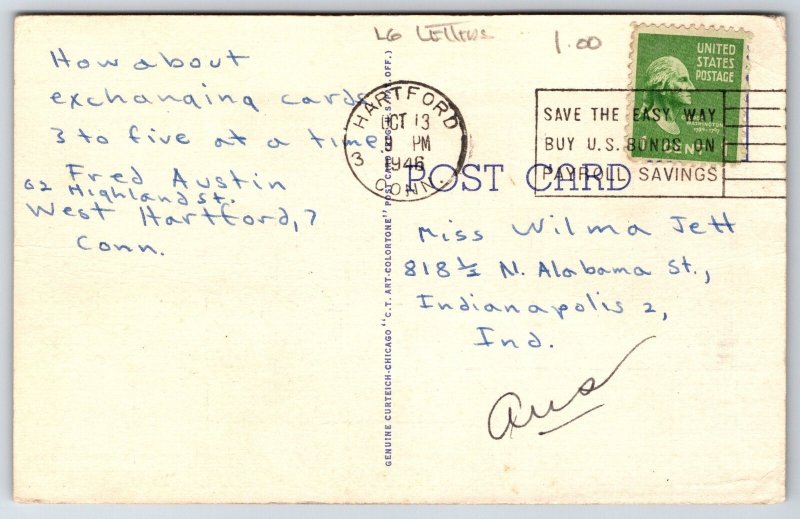 LG LETTERS
1.00
How about
exchanging cards
3 to five at a time
Fred Austin
62 Highland St.
West Hartford, 7
Conn.
HARTFORD
OCT 13
9 PM
1946
3 CONN.
SAVE THE EASY WAY
BUY U.S. BONDS ON
PAYROLL SAVINGS
UNITED
STATES
POSTAGE
WASHINGTON
POST CARD
Miss Wilma Jett
818 ½ N. Alabama St.,
Indianapolis 2,
Ind.
Ans
GENUINE CURTEICH-CHICAGO "C.T. ART-COLORTONE" POST CARD (REG. U.S. PAT. OFF.)